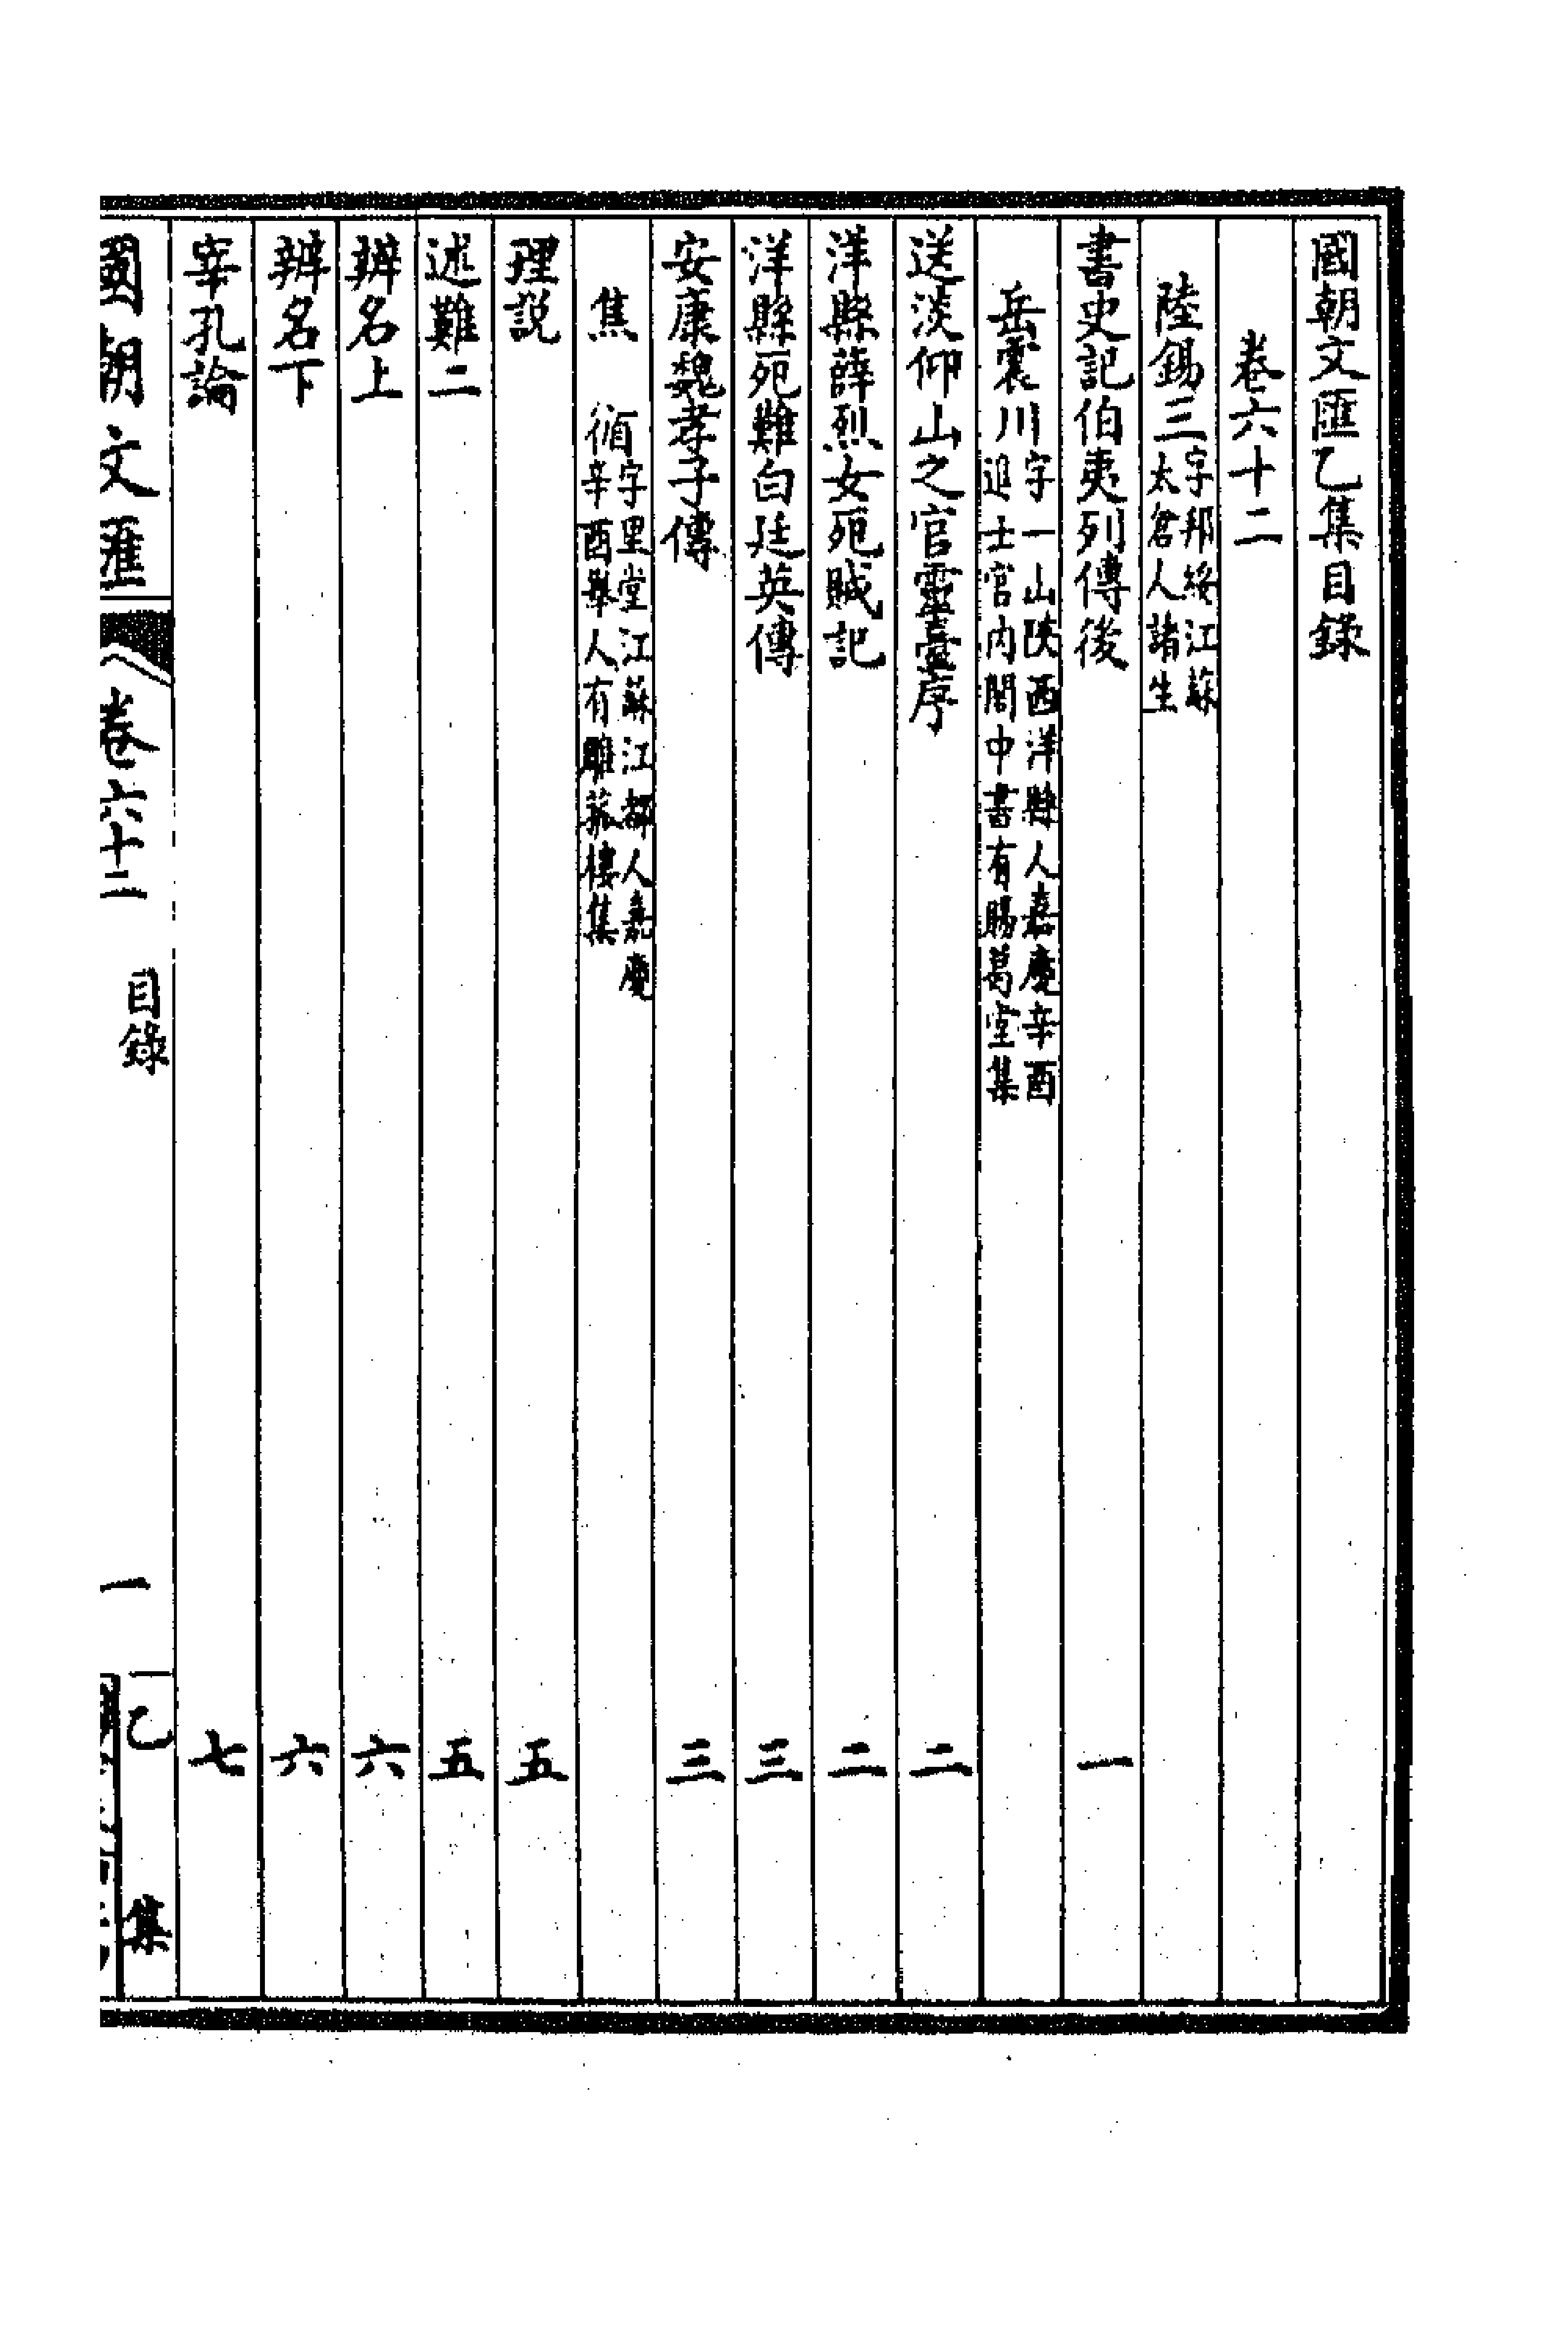 國朝文匯乙集目錄
卷六十二
陸錫三字邦綏江蘇太倉人諸生
書史記伯夷列傳後 一
岳震川字一山陝西洋縣人嘉慶辛酉進士官內閣中書有賜葛堂集
送淡仰山之官靈臺序 二
洋縣薛烈女死賊記 二
洋縣死難白廷英傳 三
安康魏孝子傳 三
焦 循字里堂江蘇江都人嘉慶辛酉舉人有雕菰樓集
理説 五
述難二 五
辨名上 六
辨名下 六
宰孔論 七
國朝文匯 卷六十二 目錄 一 乙集